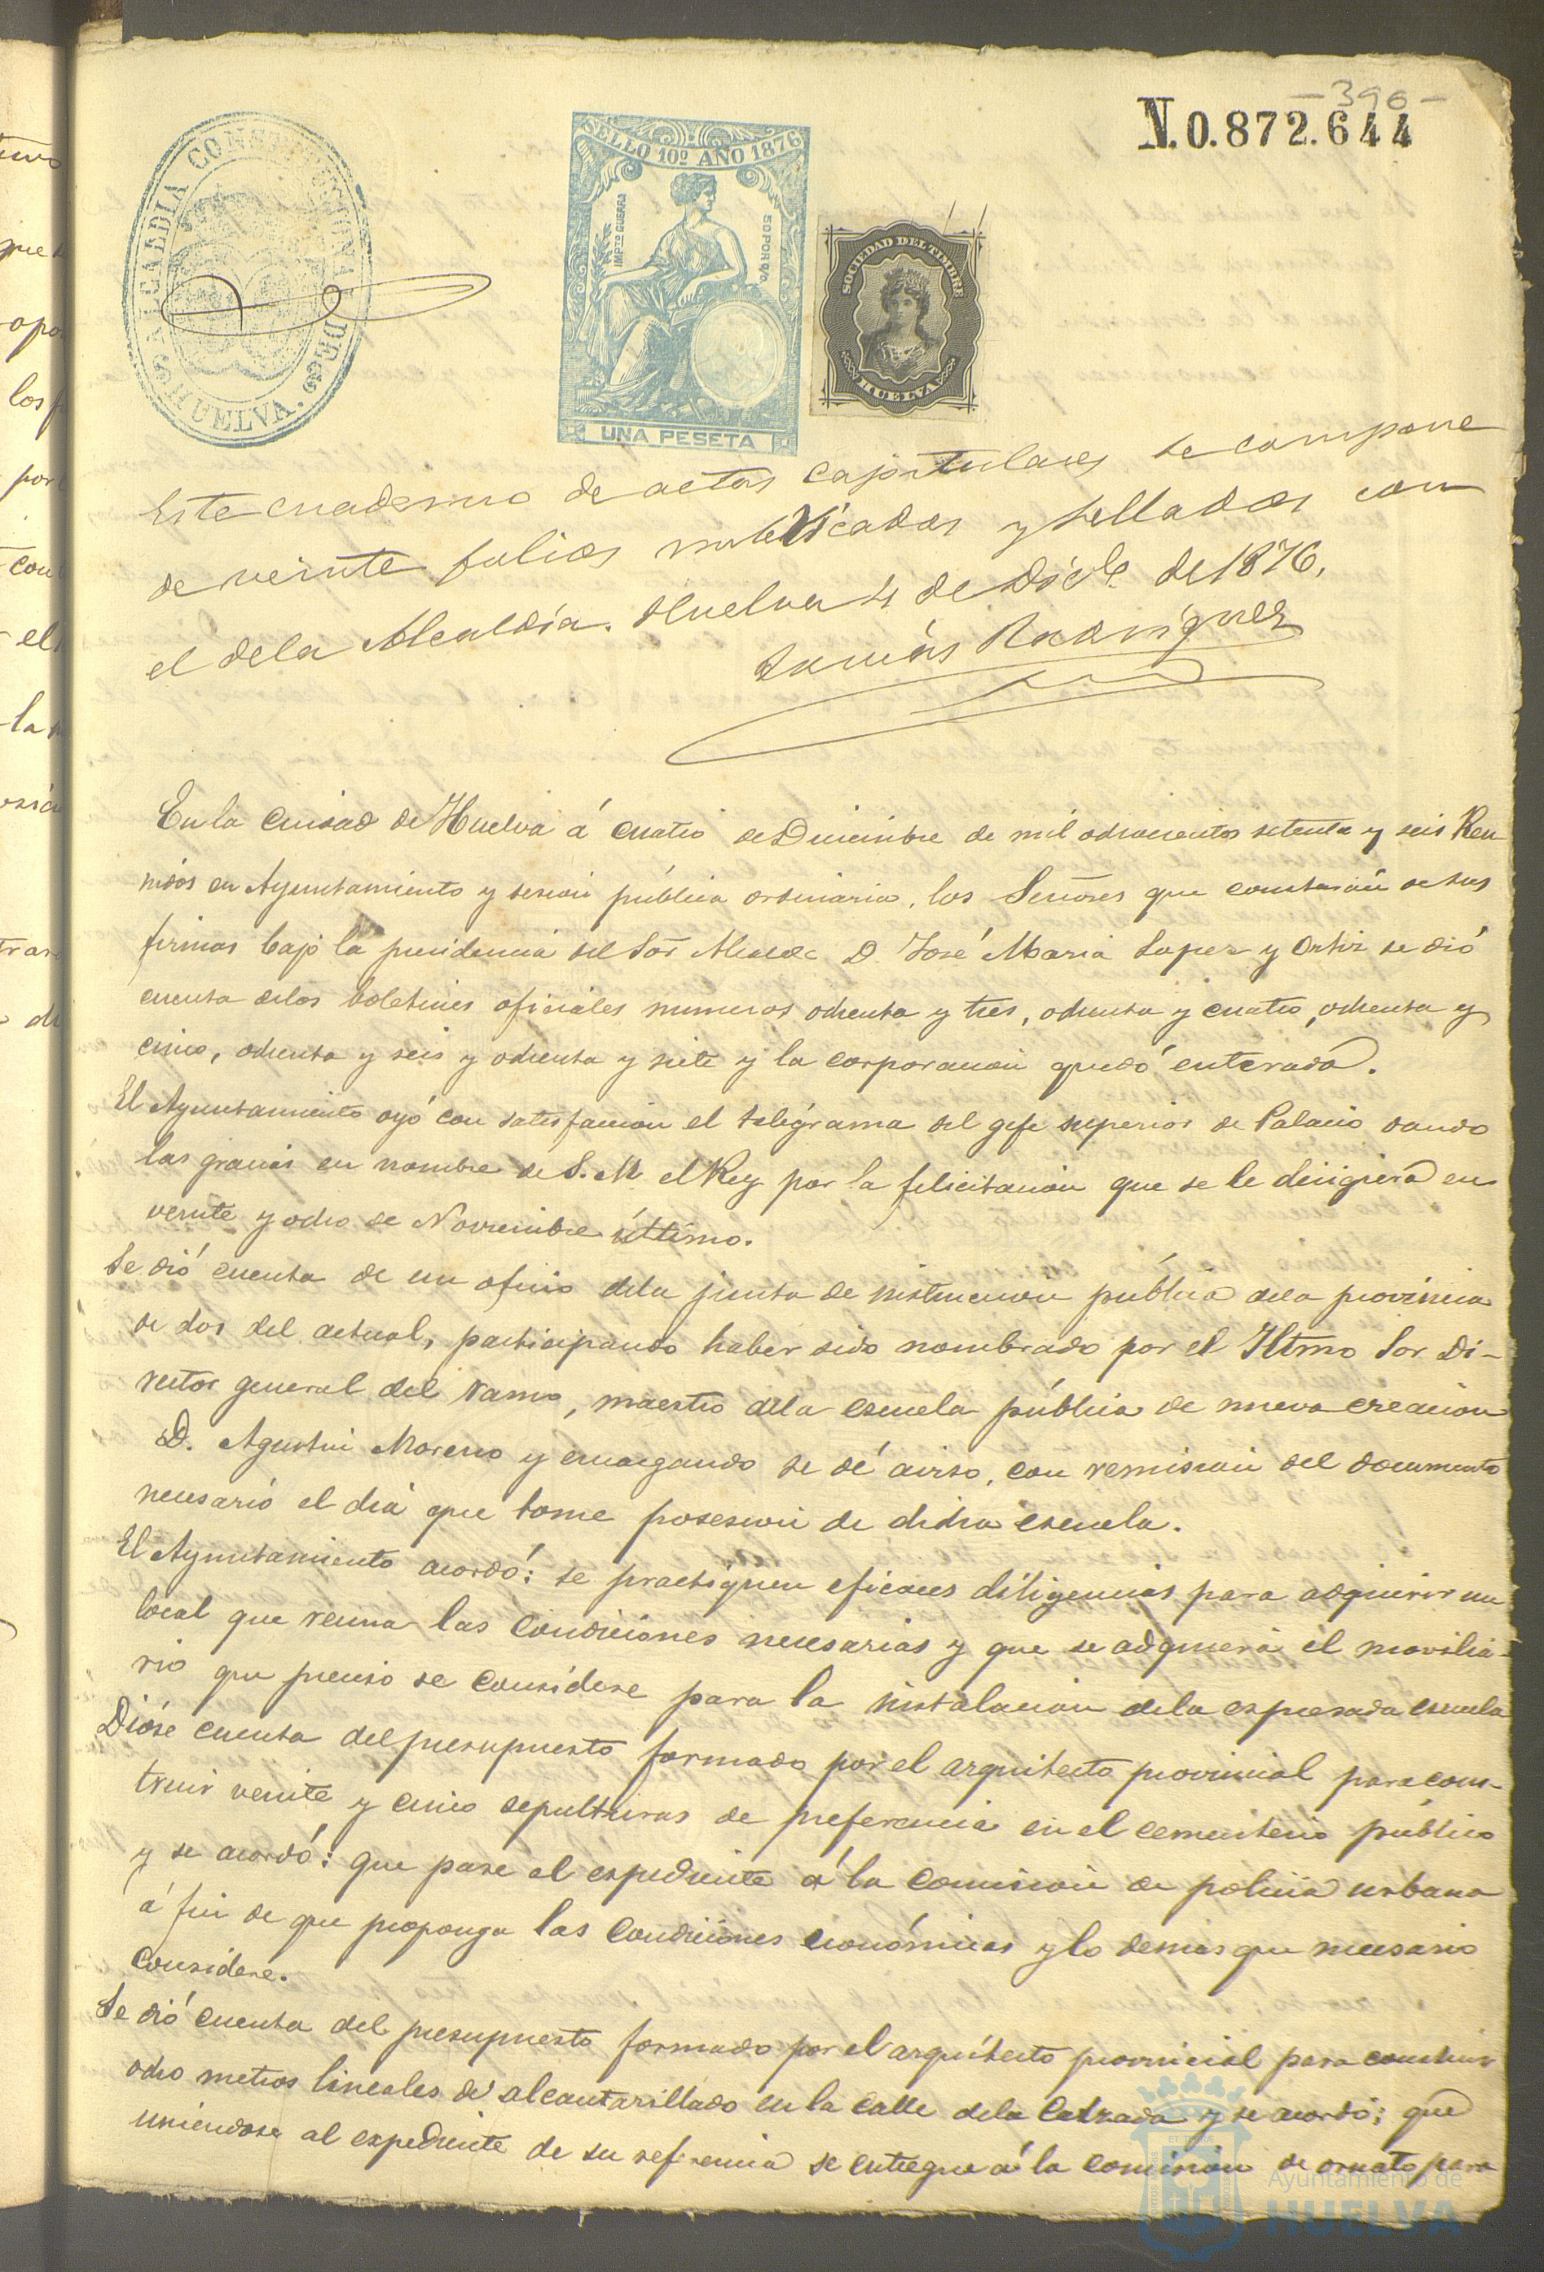 -396-
N.0.872.644
ALCALDIA CONSTITUCIONAL DE HUELVA.
SELLO 10º AÑO 1876
IMPTO GUERRA
50 POR 0/0
UNA PESETA
SOCIEDAD DEL TIMBRE
HUELVA
Este cuaderno de actas capitulares se compone
de veinte folios rubricados y sellados con
el dela Alcaldía. Huelva 4 de Dicbe. de 1876.
Tomás Rodriguez
En la Ciudad de Huelva á cuatro de Diciembre de mil ochocientos setenta y seis Reu
nidos en Ayuntamiento y sesion pública ordinaria, los Señores que constarán de sus
firmas bajo la presidencia del Sor Alcalde D. José Maria Lopez y Ortiz se dió
cuenta delos boletines oficiales numeros ochenta y tres, ochenta y cuatro, ochenta y
cinco, ochenta y seis y ochenta y siete y la corporacion quedó enterada.
El Ayuntamiento oyó con satisfaccion el telégrama del gefe superior de Palacio dando
las gracias en nombre de S. M. el Rey por la felicitacion que se le dirigiera en
veinte y ocho de Noviembre último.
Se dió cuenta de un oficio dela junta de instruccion pública dela provincia
de dos del actual, participando haber sido nombrado por el Iltmo Sor Di-
rector general del ramo, maestro dela escuela pública de nueva creacion
D. Agustin Moreno y encargando se dé aviso, con remision del documento
necesario el dia que tome posesion de dicha escuela.
El Ayuntamiento acordó: se practiquen eficaces diligencias para adquirir un
local que reuna las condiciones necesarias y que se adquiera el movilia-
rio que preciso se considere para la instalacion dela espresada escuela
Dióse cuenta del presupuesto formado por el arquitecto provincial para cons-
truir veinte y cinco sepulturas de preferencia en el cementerio público
y se acordó: que pase el espediente á la comision de policia urbana
á fin de que proponga las condiciones económicas y lo demas que necesario
considere.
Se dió cuenta del presupuesto formado por el arquitecto provincial para construir
ocho metros lineales de alcantarillado en la calle dela Calzada y se acordó: que
uniendose al expediente de su referencia se entregue á la comision de ornato para
Ayuntamiento de
HUELVA